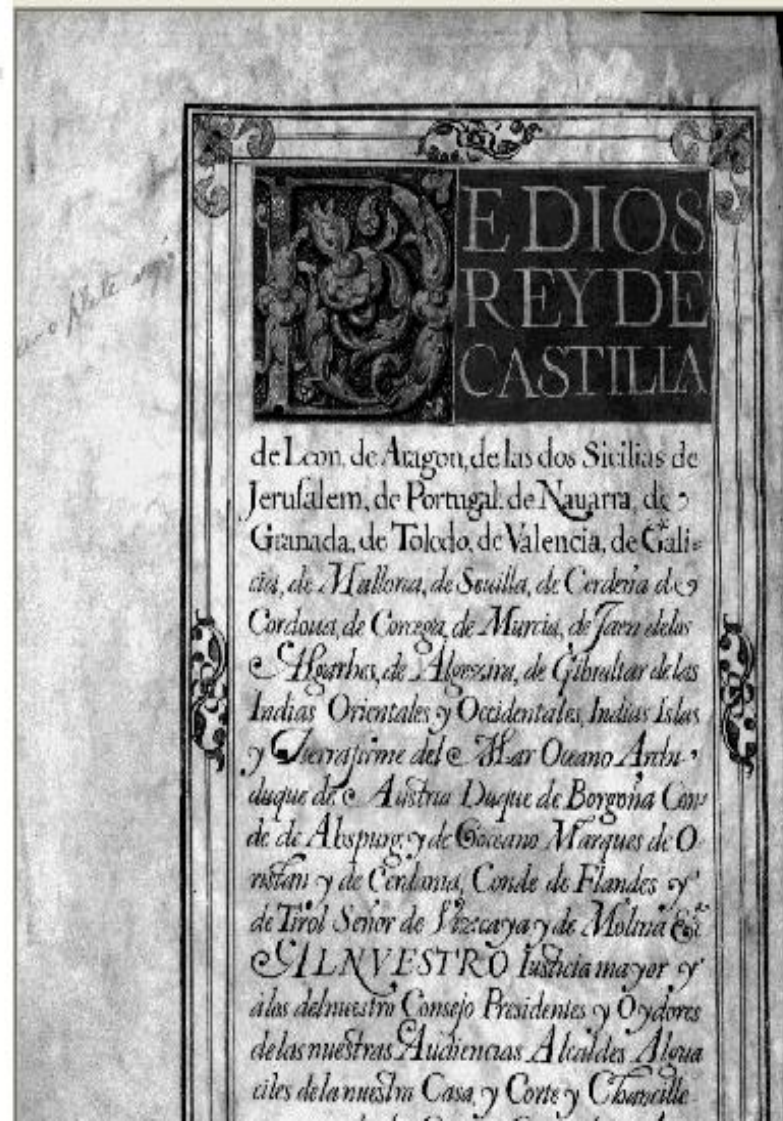 DE DIOS
REY DE
CASTILLA
de Leon, de Aragon, de las dos Sicilias de
Jerusalem, de Portugal, de Nauarra, de
Granada, de Toledo, de Valencia, de Gali=
cia, de Mallorca, de Seuilla, de Cerdeña de
Cordoua, de Corcega, de Murcia, de Jaen delos
Algarbes, de Algezira, de Gibraltar de las
Indias Orientales y Occidentales, Indias Islas
y Tierrafirme del Mar Oceano Archi-
duque de Austria Duque de Borgoña Con
de de Abspurg, y de Goceano Marques de O
ristan y de Cerdania, Conde de Flandes y
de Tirol Señor de Vizcaya y de Molina &c
AL NVESTRO Iusticia mayor y
a los del nuestro Consejo Presidentes y Oydores
de las nuestras Audiencias Alcaldes Algua
ciles de la nuestra Casa, y Corte y Chancille